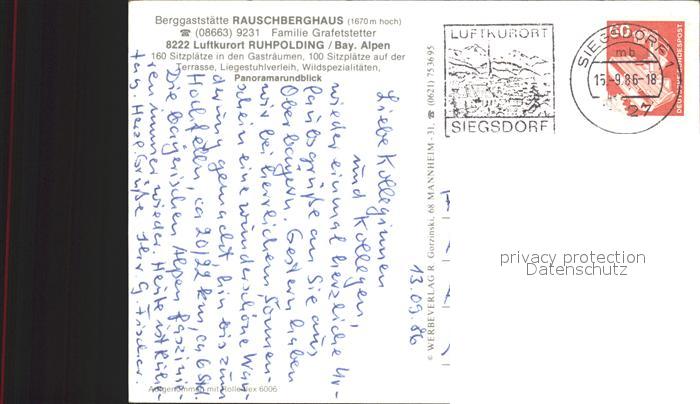 Berggaststätte RAUSCHBERGHAUS (1670 m hoch)
☎ (08663) 9231 Familie Grafetstetter
8222 Luftkurort RUHPOLDING / Bay. Alpen
160 Sitzplätze in den Gasträumen, 100 Sitzplätze auf der
Terrasse, Liegestuhlverleih, Wildspezialitäten,
Panoramarundblick
13.09.86
Liebe Kolleginnen
und Kollegen,
wieder einmal herzliche Ur-
laubsgrüße an Sie aus
Oberbayern. Gestern haben
wir bei herrlichem Sonnen-
schein eine wunderschöne Wan-
derung gemacht hin bis zum
Hochfelln, ca 20/22 km, ca 6 Std.
Die bayerischen Alpen faszinie-
ren immer wieder. Heute ist Ruhe-
tag. Herzl. Grüße Ihr G. Fischer.
Aufgenommen mit Rolleiflex 6006
© WERBEVERLAG R. Gorzinski, 68 MANNHEIM - 31, ☎ (0621) 753695
LUFTKURORT
SIEGSDORF
SIEGSDORF
mb
15.-9.86-18
60
DEUTSCHE BUNDESPOST
privacy protection
Datenschutz